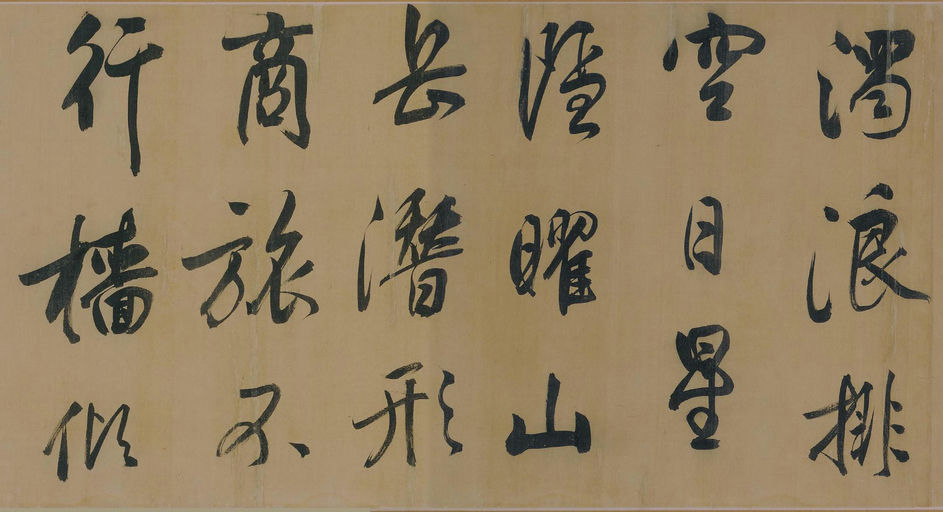 濁浪排
空日星
隱曜山
岳潛形
商旅不
行檣傾